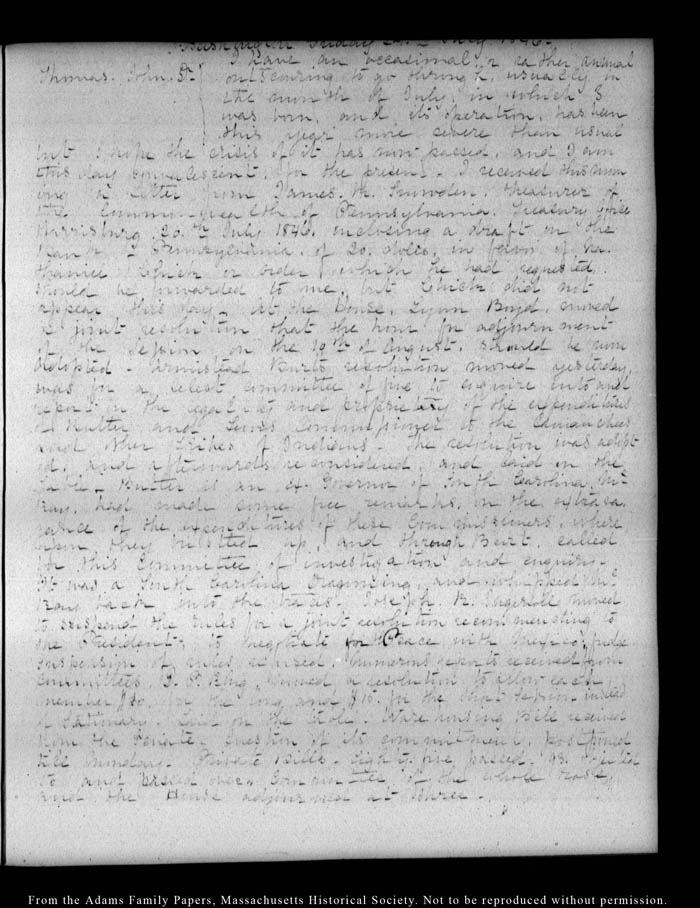 Washington Friday 24. July 1846.
Thomas. John. Sr. I have an occasional, or rather annual
outscouring to go through, usually in
the month of July, in which I
was born, and its operation, has been
this year more severe than usual
but I hope the crisis of it has now passed, and I am
this day convalescent, for the present. I received this morn
ing a letter from James. R. Snowden, treasurer of
the Commonwealth of Pennsylvania. Treasury Office
Harrisburg 20.th July 1846. enclosing a draft on the
Bank of Pennsylvania. of 20. dolls, in favor of
or order which he had requested,
should be forwarded to me, but which did not
appear this day. At the House, Lynn Boyd, moved
a joint resolution that the hour for adjournment
of the Session, on the 10th of August, should be noon
Adopted. Armistead Burts resolution moved yesterday,
was for a select committee of five to enquire into and
report on the legality and propriety of the expenditures
of Butler, and Lewis Commissioners to the Camanchees
and other tribes of Indians. The resolution was adopt
ed, and afterwards reconsidered, and laid on the
table. Butler is an ex-Governor of South Carolina.
had made some free remarks, on the extrava
gance of the expenditures of these Commissioners, where
upon they bristled up, and through Burt, called
for this Committee of investigation and enquiry.
It was a South Carolina and whipped
back into the traces. Joseph. R. Ingersoll moved
to suspend the rules for a joint resolution recommending to
the President, to negotiate for Peace with Mexico,
suspension of rules refused. Numerous reports received from
Committees. P. King, moved a resolution to allow each
member for the long and for the short Session instead
of laid on the table. Warehousing Bill received
from the Senate. question of its commitment, postponed
till Monday. Private Bills. eight. five passed. objected
to and passed over. Committee of the whole rose,
and the House adjourned at three.
From the Adams Family Papers, Massachusetts Historical Society. Not to be reproduced without permission.